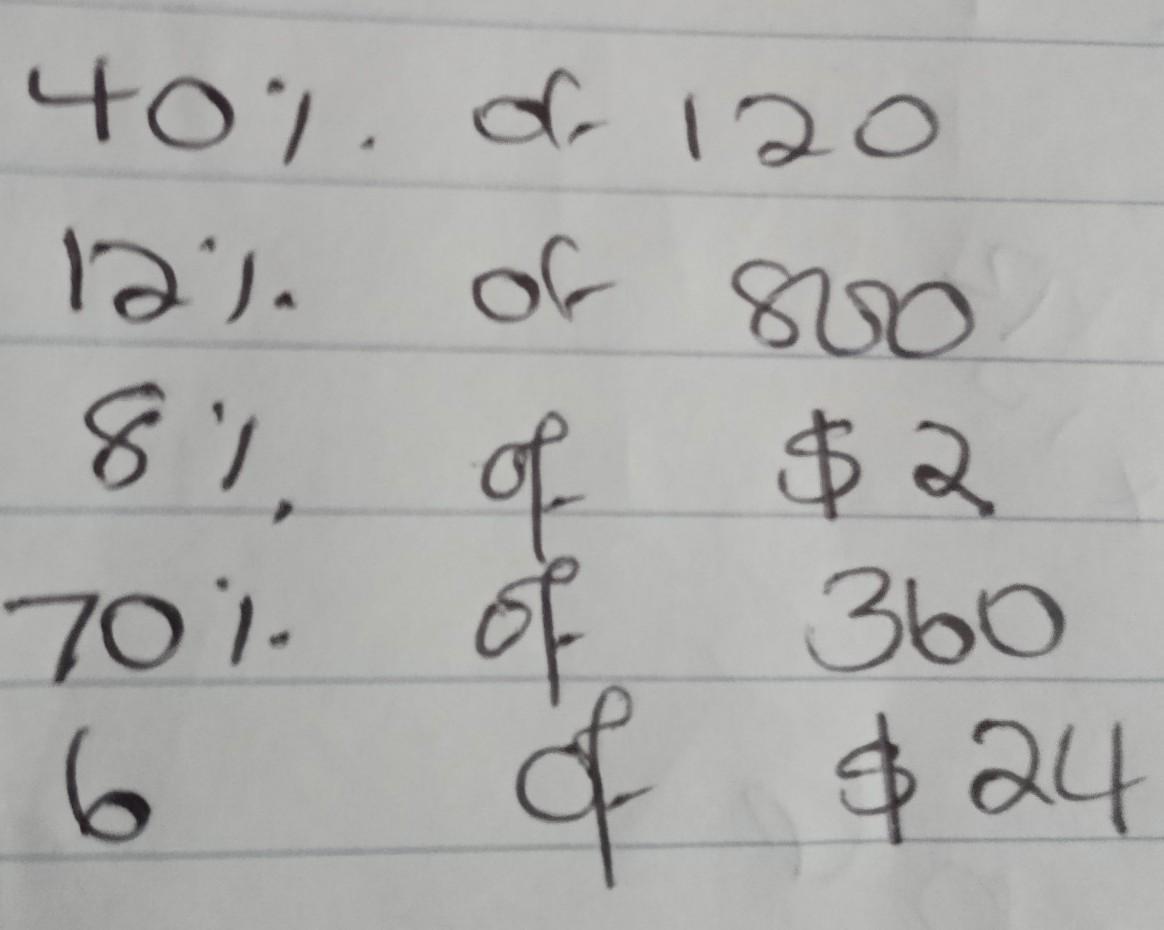 40% of 120
12% of 800
8% of $2
70% of 360
6 of $24